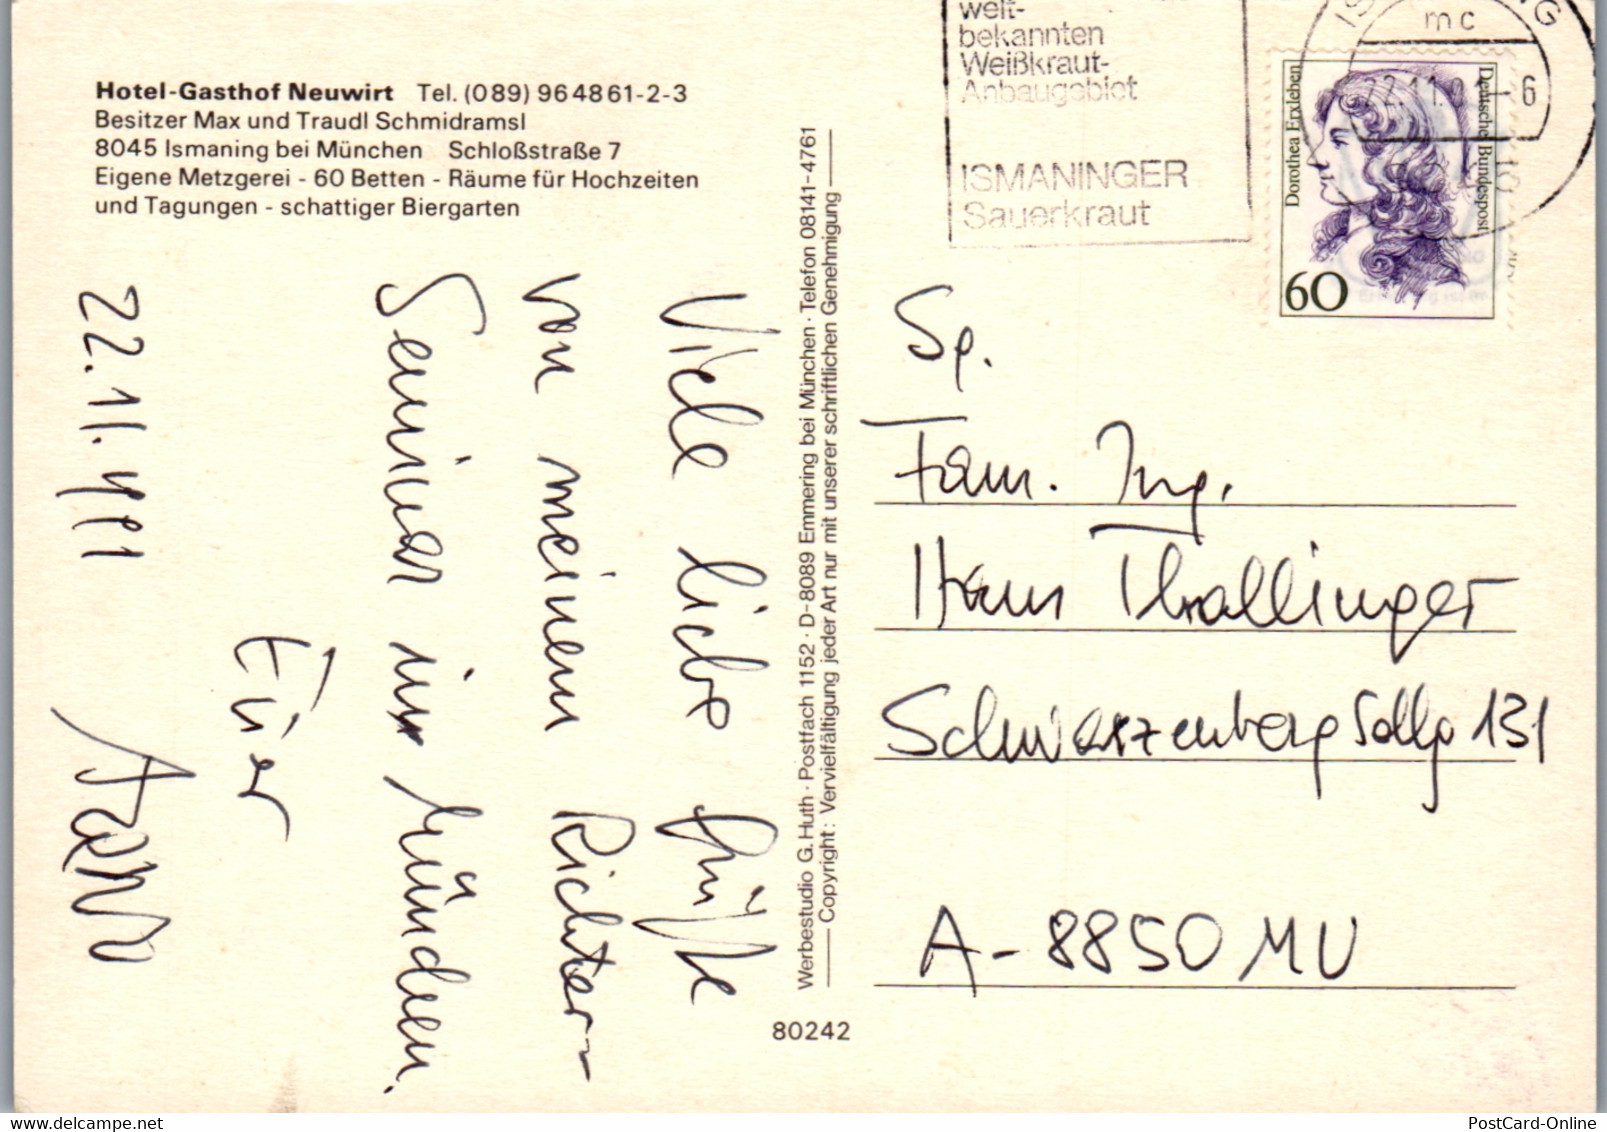 Hotel-Gasthof Neuwirt Tel. (089) 964861-2-3
Besitzer Max und Traudl Schmidramsl
8045 Ismaning bei München Schloßstraße 7
Eigene Metzgerei - 60 Betten - Räume für Hochzeiten
und Tagungen - schattiger Biergarten
welt-
bekannten
Weißkraut-
Anbaugebiet
ISMANINGER
Sauerkraut
mc
22.11.
6
Dorothea Erxleben
Deutsche Bundespost
60
Viele liebe Grüße
von meinem Richter-
Seminar in München.
Euer
22.11.1991
Werbestudio G. Huth · Postfach 1152 · D-8089 Emmering bei München · Telefon 08141-4761
Copyright: Vervielfältigung jeder Art nur mit unserer schriftlichen Genehmigung
80242
Sp.
Fam. Ing.
Hans Thallinger
Schwarzenbergsdlg 131
A-8850 MU
PostCard-Online